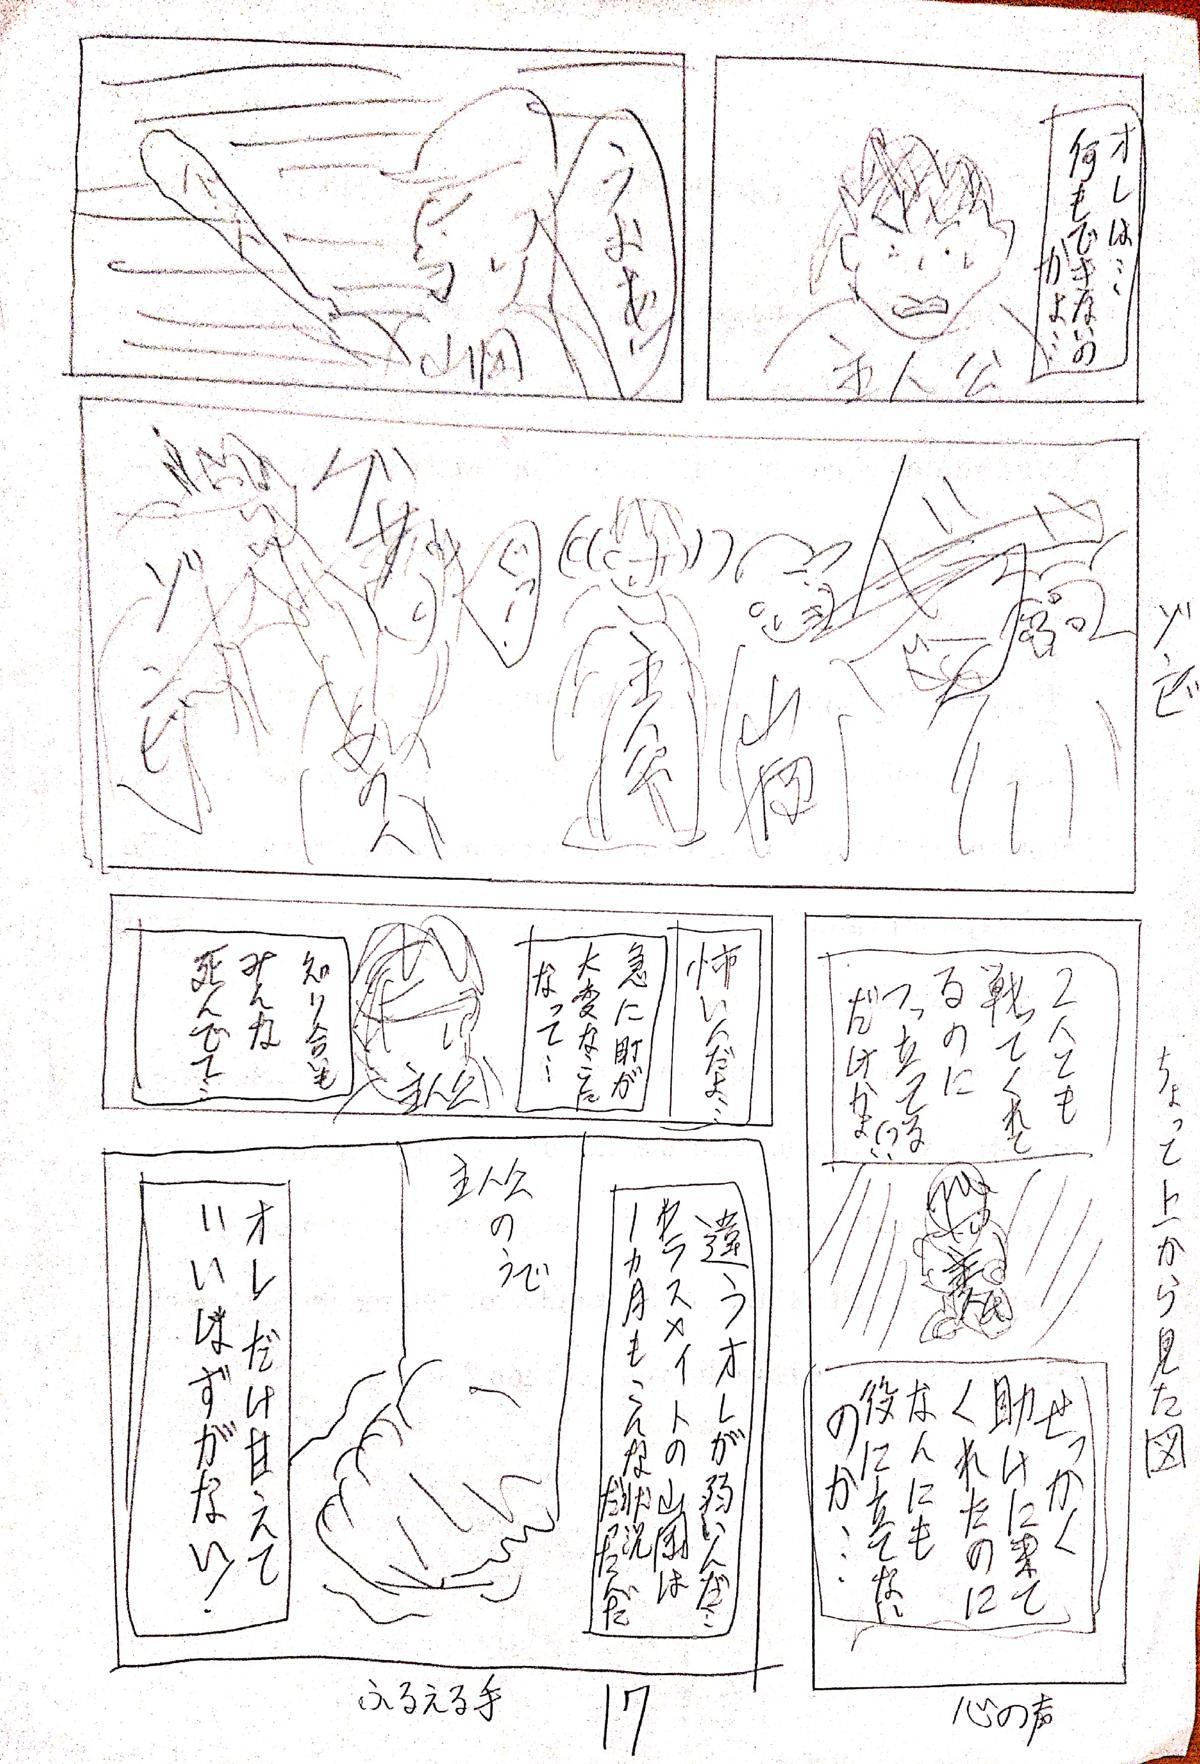 オレは…
何もできないの
かよ…
主人公
うおお!!
山岡
ゾンビ
山岡
主人公
ぐっ!
めの人
ゾンビ
ちょっと上から見た図
2人とも
戦ってくれて
るのに
つっ立ってる
だけかよ…
せっかく
助けに来て
くれたのに
なんにも
役に立てない
のか…
心の声
怖いんだよ…
急に町が
大変なことに
なって…
主人公
知り合いも
みんな
死んでて…
違うオレが弱いんだ…
クラスメイトの山岡は
一カ月もこんな状況
だったんだ
主人公
のうで
オレだけ甘えて
いいはずがない!
ふるえる手
17